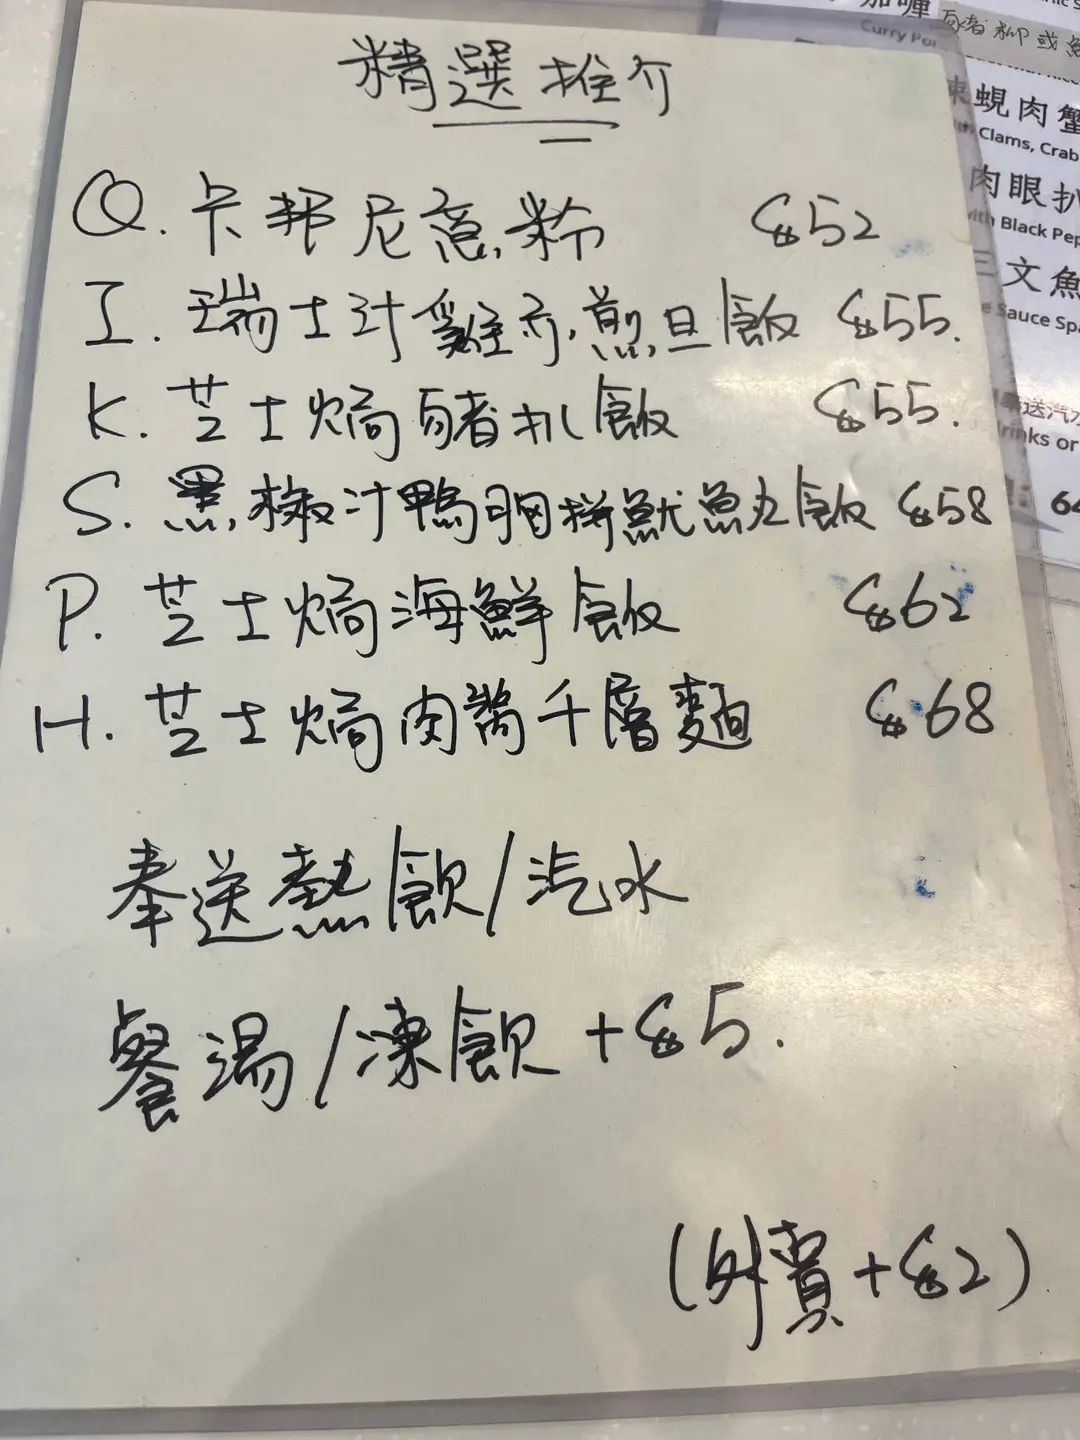 精選推介
Q. 卡邦尼意粉 $52
I. 瑞士汁雞亦煎旦飯 $55.
K. 芝士焗豬扒飯 $55.
S. 黑椒汁鴨胸拼魷魚丸飯 $58
P. 芝士焗海鮮飯 $62
H. 芝士焗肉醬千層麵 $68
奉送熱飲/汽水
餐湯/凍飲 + $5.
(外賣 + $2)
咖喱
Curry Po
豬柳或
蜆肉蟹
Clams, Crab
肉眼扒
with Black Pep
三文魚
e Sauce Spa
送汽水
rinks or
64